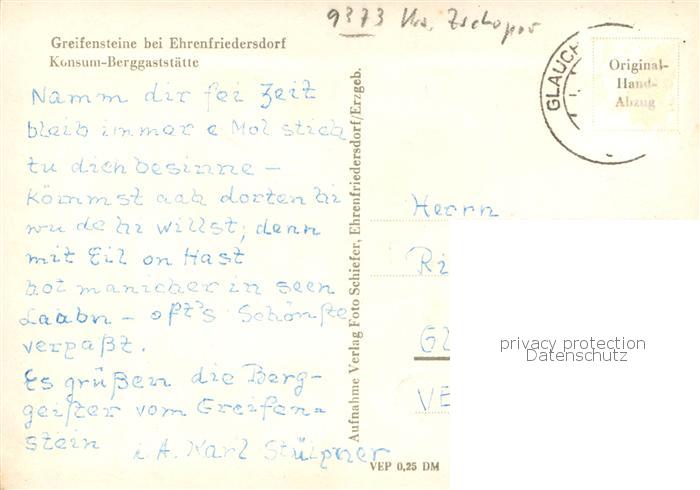 9373 Krs. Zschopau
Greifensteine bei Ehrenfriedersdorf
Konsum-Berggaststätte
GLAUCH
Original-
Hand-
Abzug
Namm dir fei Zeit
bleib immer e Mol stieh
tu dich besinne -
Kömmst aah dorten hi
wu de hi willst; denn
mit Eil on Hast
hot manicher in seen
Laabn - oft's Schönste
verpaßt.
Es grüßen die Berg-
geister vom Greifen=
stein
i. A. Karl Stülpner
Aufnahme Verlag Foto Schiefer, Ehrenfriedersdorf/Erzgeb.
Herrn
Ri
Gl
VE
privacy protection
Datenschutz
VEP 0,25 DM